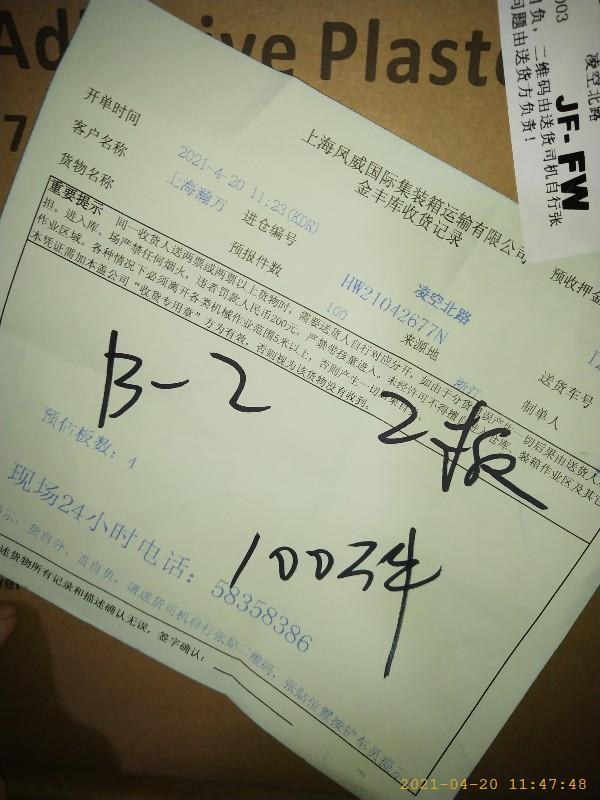 Adhesive Plaste
7
003
凌空北路
自负,二维码由送货司机自行张
问题由送货方负责!
JF-FW
上海凤威国际集装箱运输有限公司
金丰库收货记录
开单时间
2021-4-20 11:23(KDR)
预收押金
客户名称
上海瀚万
进仓编号
HW21042677N
凌空北路
送货车号
货物名称
预报件数
100
来源地
浙江
制单人
重要提示
同一收货人送两票或两票以上货物时,需要送货人自行对应分开,如由于分货
误产生一切后果由送货人
担。进入库、场严禁任何烟火,违者罚款人民币200元,严禁带拽童进入,未经许可不得擅自进入仓库、装箱作业区及其它
作业区域。各种情况下必须离开各类机械作业范围5米以上,否则产生一切
本凭证需加本盖公司“收货专用章”方为有效,否则视为该货物没有收到。
B-2 2板
预估板数:4
100件
现场24小时电话:58358386
示:货自分、责自负,请送货司机自行张贴二维码,张贴位置按铲车员提示
述货物所有记录和描述确认无误,签字确认:
2021-04-20 11:47:48